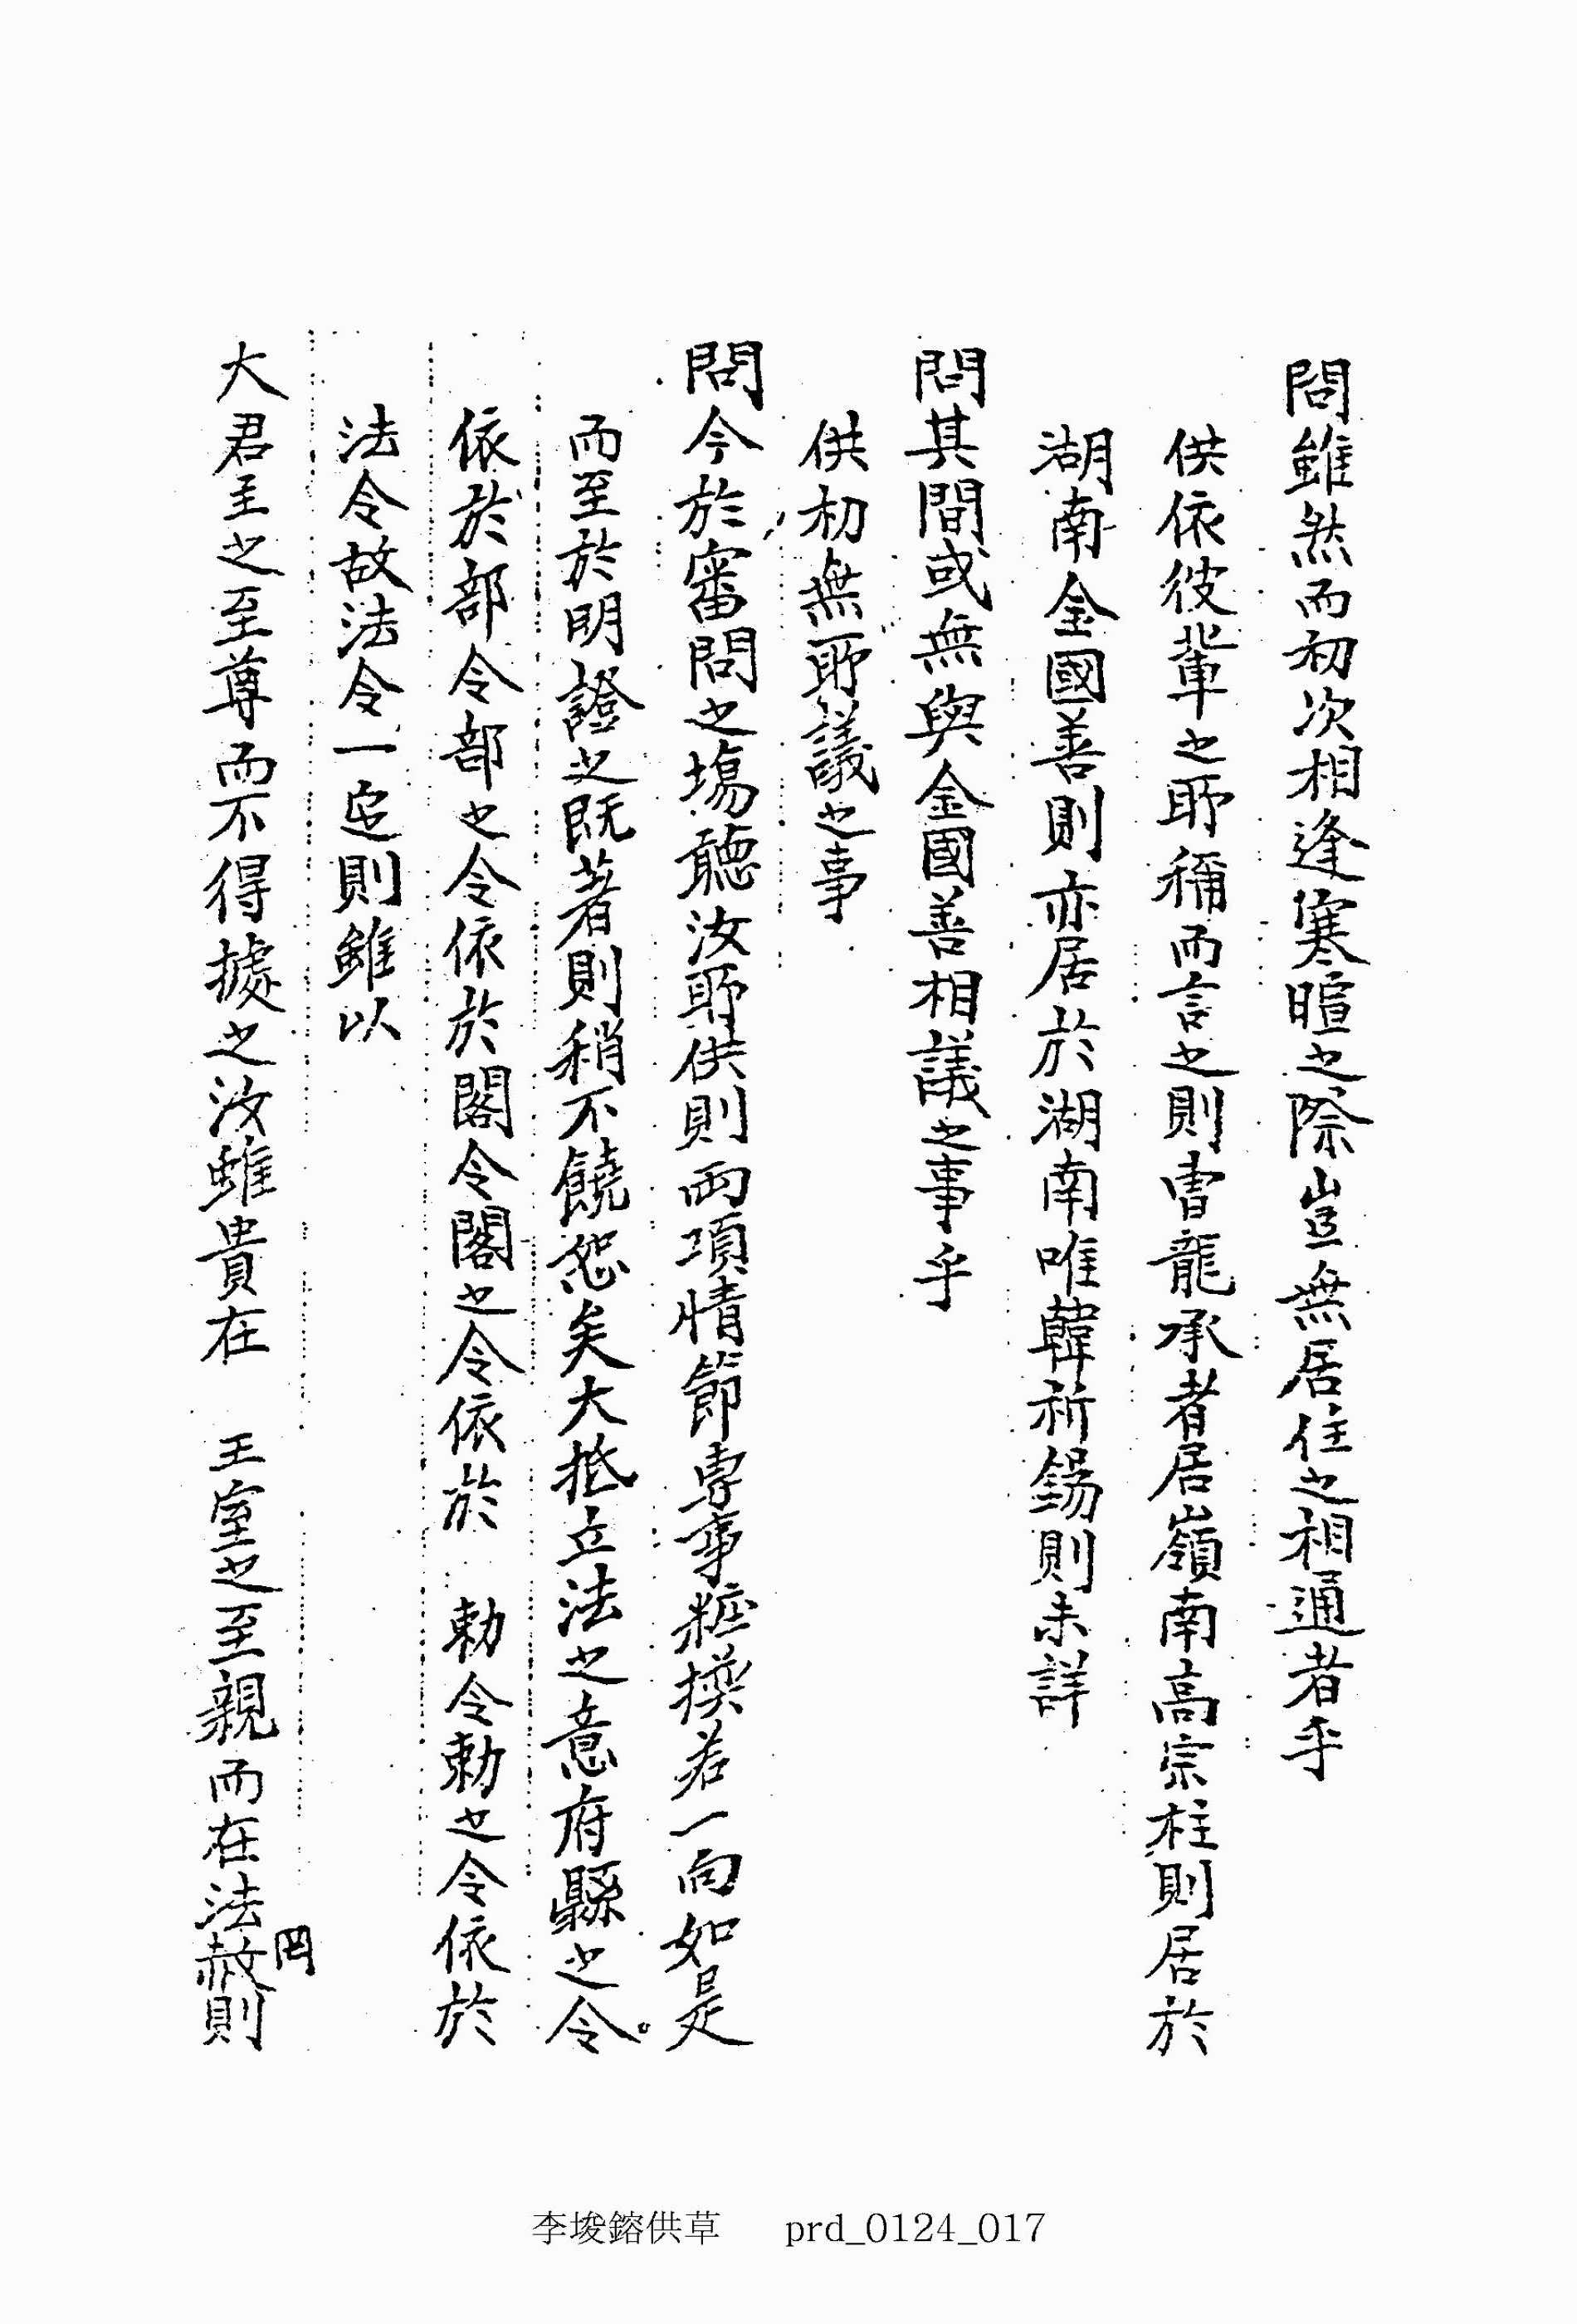 問雖然而初次相逢寒暄之際豈無居住之相通者乎
供依彼輩之所稱而言之則曺龍承者居嶺南高宗柱則居於
湖南金國善則亦居於湖南唯韓祈錫則未詳
問其間或無與金國善相議之事乎
供初無所議之事
問今於審問之場聽汝所供則兩項情節專事粧撰若一向如是
而至於明證之既著則稍不饒恕矣大抵立法之意府縣之令
依於部令部之令依於閣令閣之令依於 勅令勅之令依於
法令故法令一定則雖以
大君主之至尊而不得據之汝雖貴在 王室之至親而在法赦則
罔
李埈鎔供草 prd_0124_017